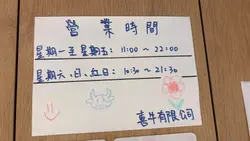 營業時間
星期一至星期五：11:00～22:00
星期六、日、紅日：10:30～21:30
喜牛有限公司